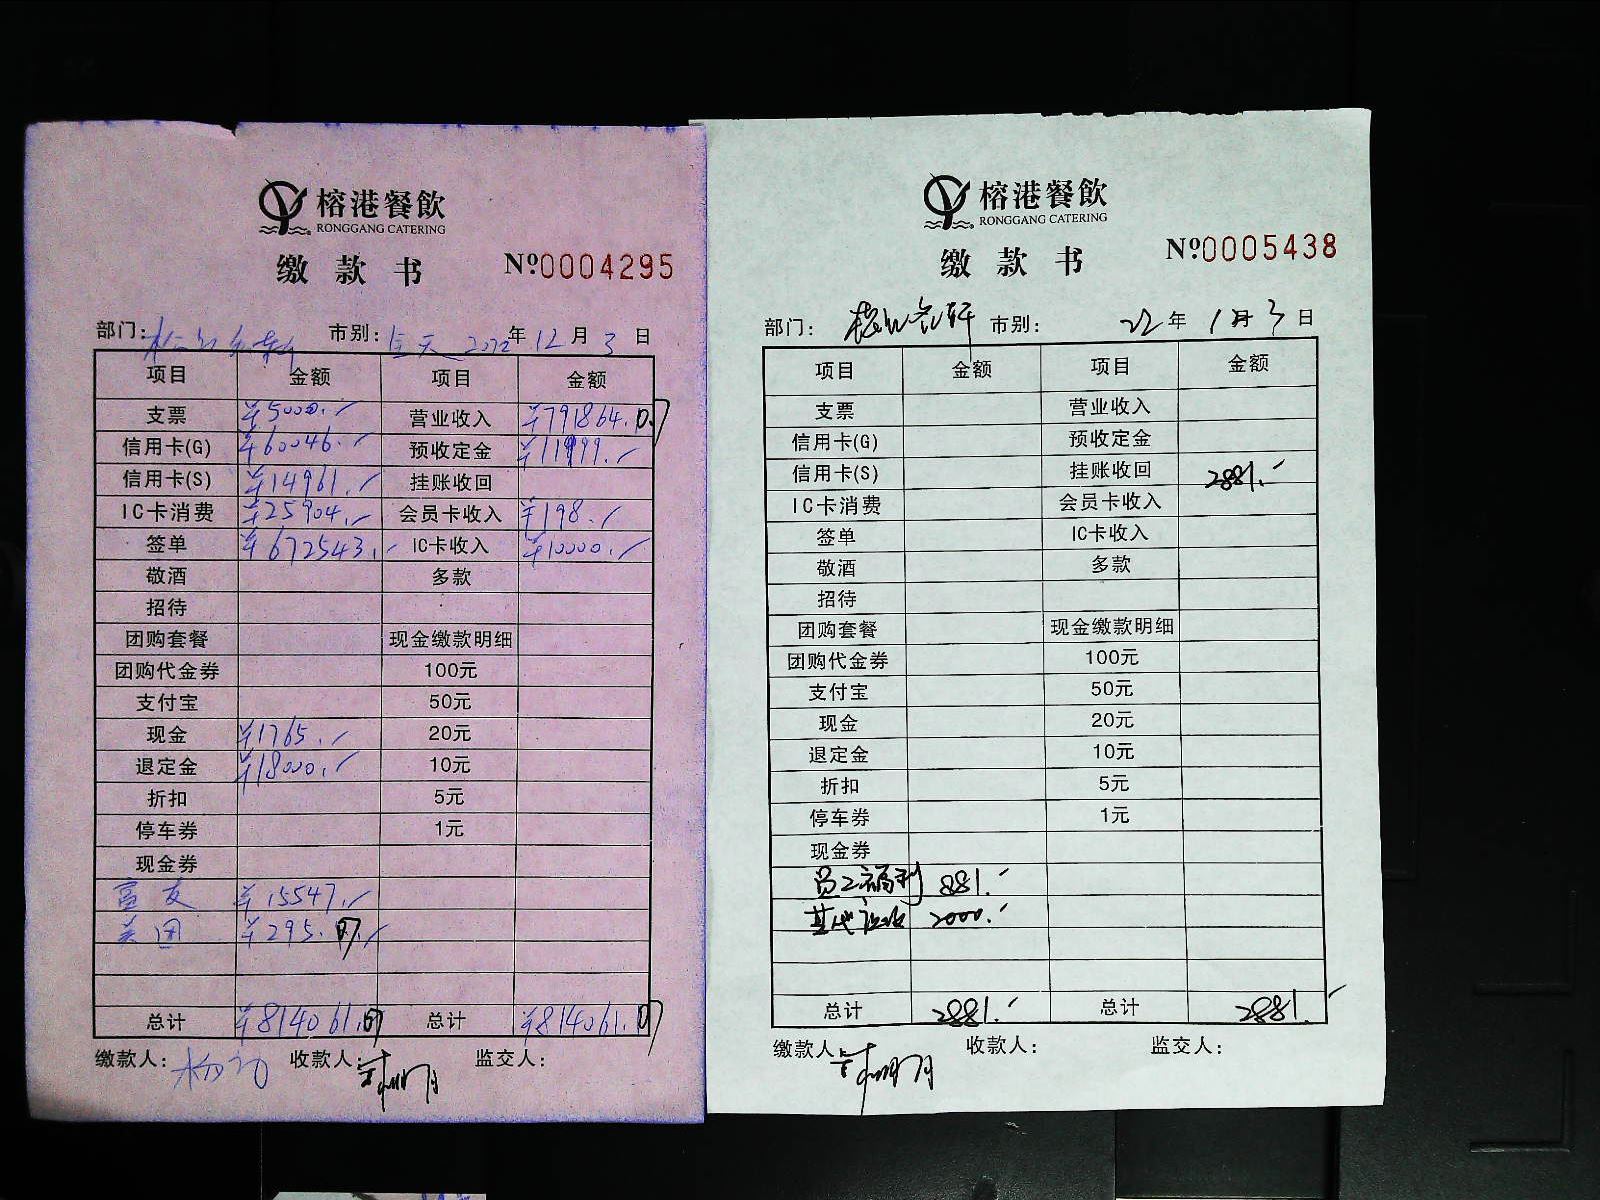 榕港餐飲
RONGGANG CATERING
缴款书 №0004295
部门: 市别: 全天 2022年12月3日
项目 金额 项目 金额
支票 ¥5000. 营业收入 ¥791864.07
信用卡(G) ¥60046. 预收定金 ¥11999.
信用卡(S) ¥14961. 挂账收回
IC卡消费 ¥25904. 会员卡收入 ¥198.
签单 ¥672543. IC卡收入 ¥10000.
敬酒 多款
招待
团购套餐 现金缴款明细
团购代金券 100元
支付宝 50元
现金 ¥1765. 20元
退定金 ¥18000. 10元
折扣 5元
停车券 1元
现金券
富友 ¥15547.
美团 ¥295.07
总计 ¥814061.07 总计 ¥814061.07
缴款人: 收款人: 监交人:
榕港餐飲
RONGGANG CATERING
缴款书 №0005438
部门: 市别: 22年1月3日
项目 金额 项目 金额
支票 营业收入
信用卡(G) 预收定金
信用卡(S) 挂账收回 2881.
IC卡消费 会员卡收入
签单 IC卡收入
敬酒 多款
招待
团购套餐 现金缴款明细
团购代金券 100元
支付宝 50元
现金 20元
退定金 10元
折扣 5元
停车券 1元
现金券
员工福利 881.
2000.
总计 2881. 总计 2881.
缴款人: 收款人: 监交人: